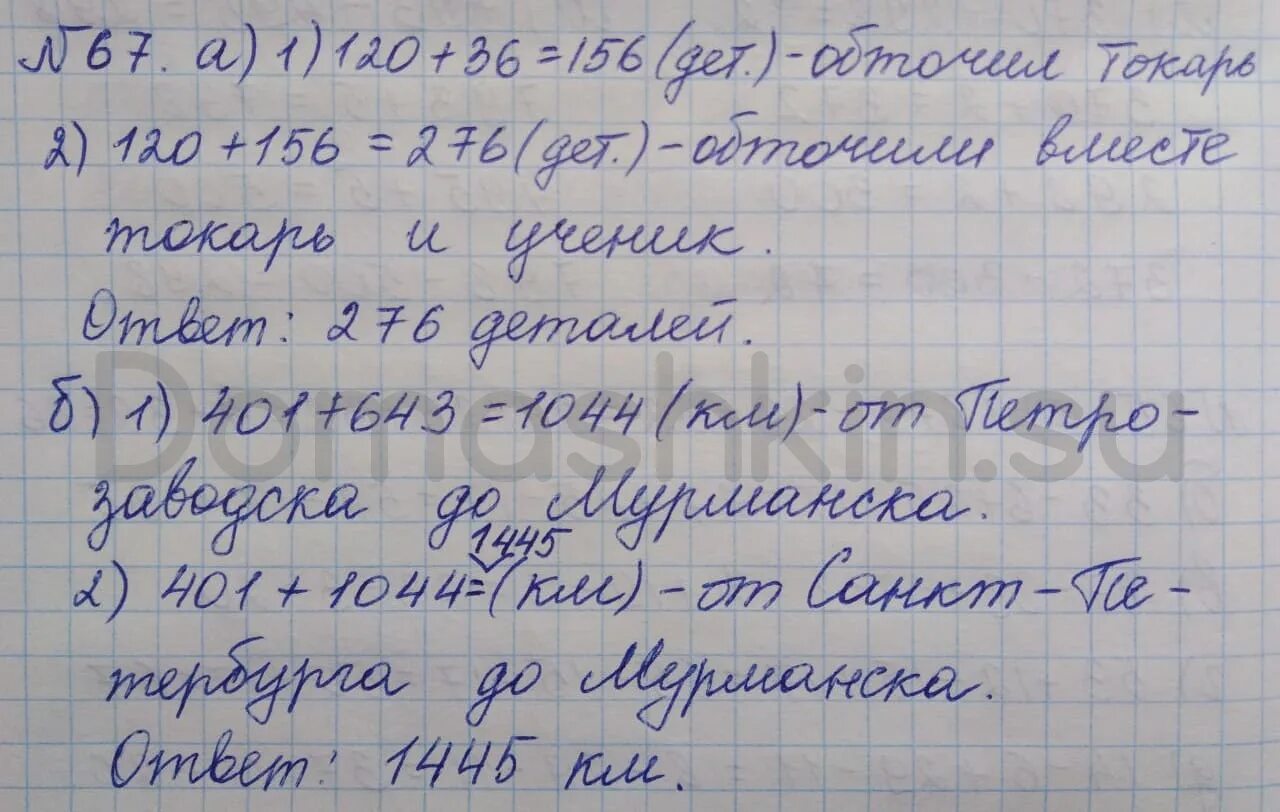 №67. а) 1) 120+36=156(дет.)-обточил токарь
2) 120+156=276(дет.)-обточили вместе
токарь и ученик.
Ответ: 276 деталей.
б) 1) 401+643=1044(км)-от Петро-
заводска до Мурманска.
1445
2) 401+1044=(км)-от Санкт-Пе-
тербурга до Мурманска.
Ответ: 1445 км.
Domashkin.su